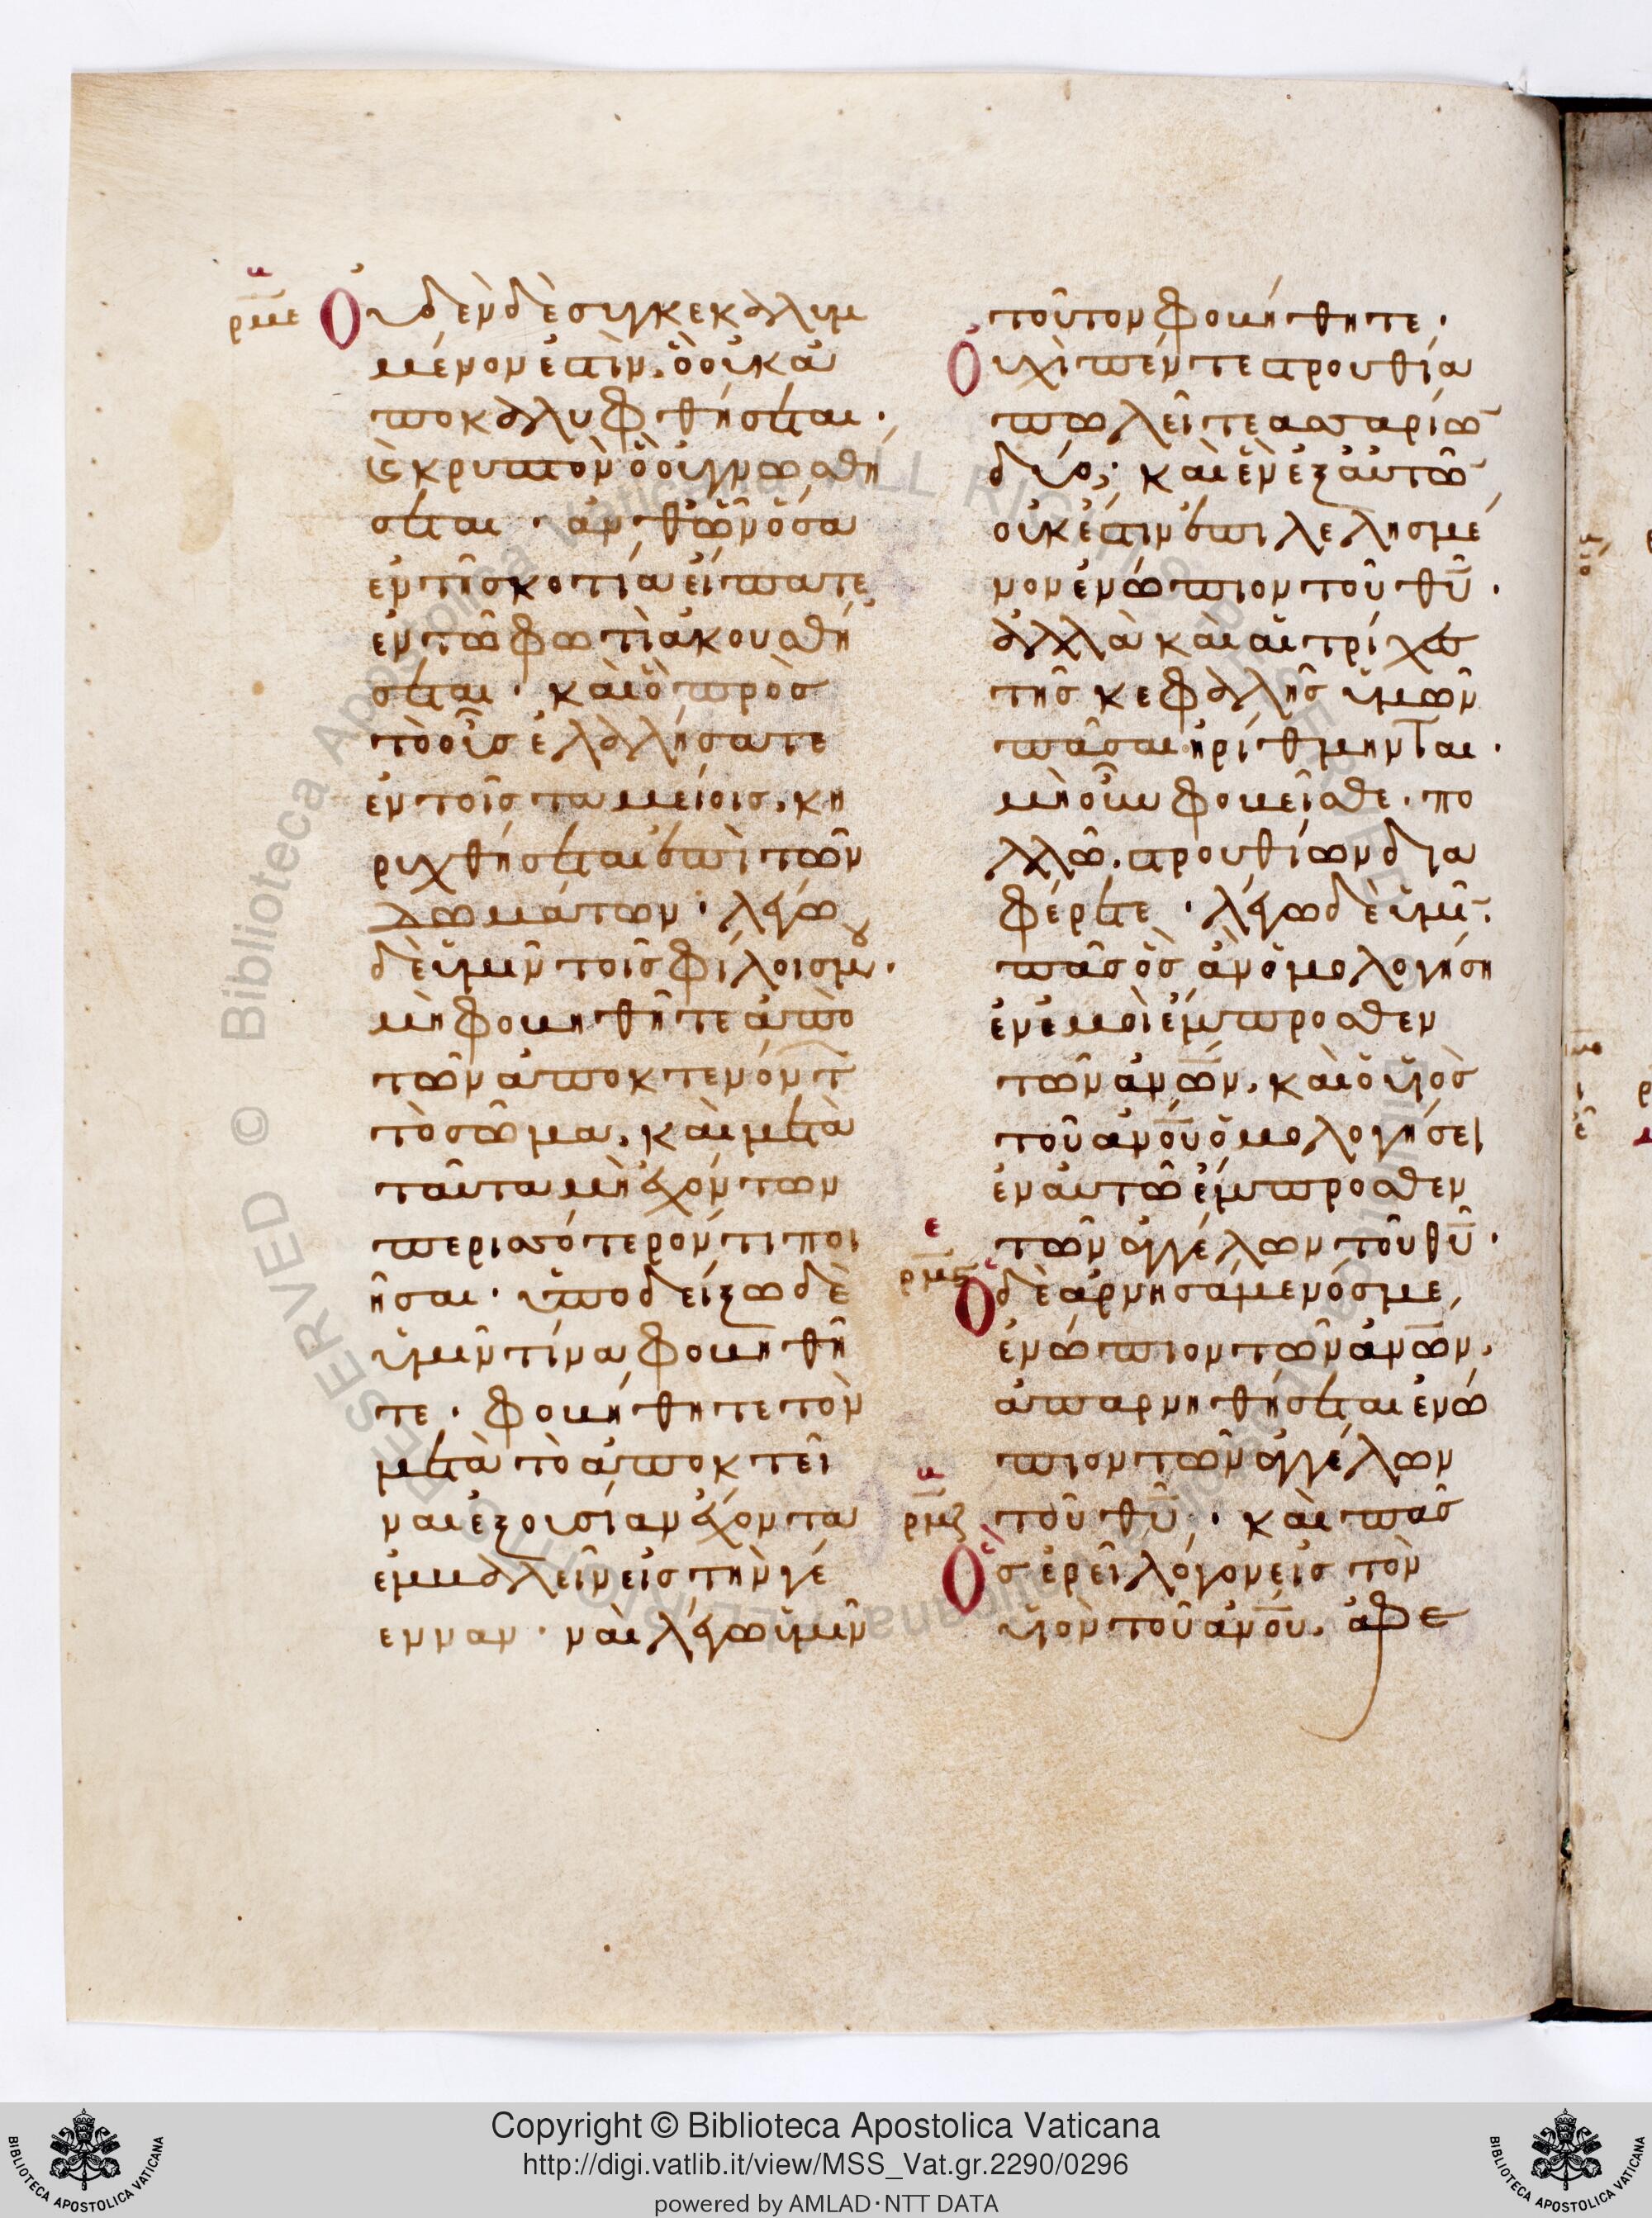 β
ρμε
Οὐδὲν δὲ συγκεκαλυμ
μένον ἐστὶν, ὃ οὐκ ἀ
ποκαλυφθήσεται·
καὶ κρυπτὸν ὃ οὐ γνωσθή
σεται· ἀνθ' ὧν ὅσα
ἐν τῆ σκοτία εἴπατε
ἐν τῶ φωτὶ ἀκουσθή
σεται· καὶ ὃ πρὸς
τὸ οὖς ἐλαλήσατε
ἐν τοῖς ταμείοις, κη
ρυχθήσεται ἐπὶ τῶν
δωμάτων· λέγω
δὲ ὑμῖν τοῖς φίλοις μου·
μὴ φοβηθῆτε ἀπὸ
τῶν ἀποκτενόντ
τὸ σῶμα, καὶ μετὰ
ταῦτα μὴ ἐχόντων
περισσότερόν τι ποι
ῆσαι· ὑποδείξω δὲ
ὑμῖν τίνα φοβηθῆ
τε· φοβήθητε τὸν
μετὰ τὸ ἀποκτεῖ
ναι ἐξουσίαν ἔχοντα
ἐμβαλεῖν εἰς τὴν γέ
ενναν· ναὶ λέγω ὑμῖν
τοῦτον φοβήθητε·
Οὐχὶ πέντε στρουθία
πωλεῖτε ἀσσαρίω
δύο; καὶ ἓν ἐξ αὐτῶ
οὐκ ἔστιν ἐπιλελησμέ
νον ἐνώπιον τοῦ θυ·
ἀλλὰ καὶ αἱ τρίχες
τῆς κεφαλῆς ὑμῶν
πᾶσαι ἠρίθμηνται·
μὴ οὖν φοβεῖσθε· πο
λλῶ, στρουθίων δια
φέρετε· λέγω δὲ ὑμῖ·
πᾶς ὃς ἂν ὁμολογήση
ἐν ἐμοὶ ἔμπροσθεν
τῶν ἀνων, καὶ ὁ υἱὸς
τοῦ ἀνου ὁμολογήσει
ἐν αὐτῶ ἔμπροσθεν
τῶν ἀγγέλων τοῦ θυ·
ε
ρμς
Ὁ δὲ ἀρνησάμενός με,
ἐνώπιον τῶν ἀνων,
ἀπαρνηθήσεται ἐνώ
πιον τῶν ἀγγέλων
β
ρμζ
τοῦ θυ· καὶ πᾶς
Ὃς ἐρεῖ λόγον εἰς τὸν
υἱὸν τοῦ ἀνου, ἀφε
© Biblioteca Apostolica Vaticana ALL RIGHTS RESERVED
BIBLIOTECA APOSTOLICA VATICANA
Copyright © Biblioteca Apostolica Vaticana
http://digi.vatlib.it/view/MSS_Vat.gr.2290/0296
powered by AMLAD·NTT DATA
BIBLIOTECA APOSTOLICA VATICANA